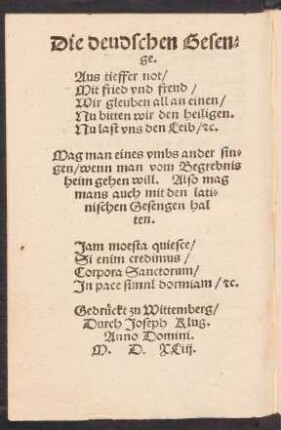 Die deudschen Gesen-
ge.
Aus tieffer not/
Mit fried vnd freud/
Wir gleuben all an einen/
Nu bitten wir den heiligen.
Nu last vns den Leib/ꝛc.
Mag man eines vmbs ander sin-
gen/wenn man vom Begrebnis
heim gehen will. Also mag
mans auch mit den lati-
nischen Gesengen hal
ten.
Iam moesta quiesce/
Si enim credimus/
Corpora Sanctorum/
In pace simul dormiam/ꝛc.
Gedrückt zu Wittemberg/
Durch Joseph Klug.
Anno Domini.
M. D. XLij.